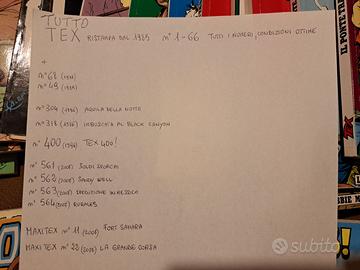 TUTTO
TEX RISTAMPA DAL 1985 N° 1-66 TUTTI I NUMERI, CONDIZIONI OTTIME
+
N° 68 (1991)
N° 49
N° 304 (1986) AQUILA DELLA NOTTE
N° 318 IMBOSCATA AL BLACK CANYON
N° 400 (1994) TEX 400!
N° 561 SOLDI SPORCHI
N° 562 SANDY WELL
N° 563 SPEDIZIONE IN MESSICO
N° 564 RURALES
MAXI TEX N° 11 FORT SAHARA
MAXI TEX N° 22 LA GRANDE CORSA
subito